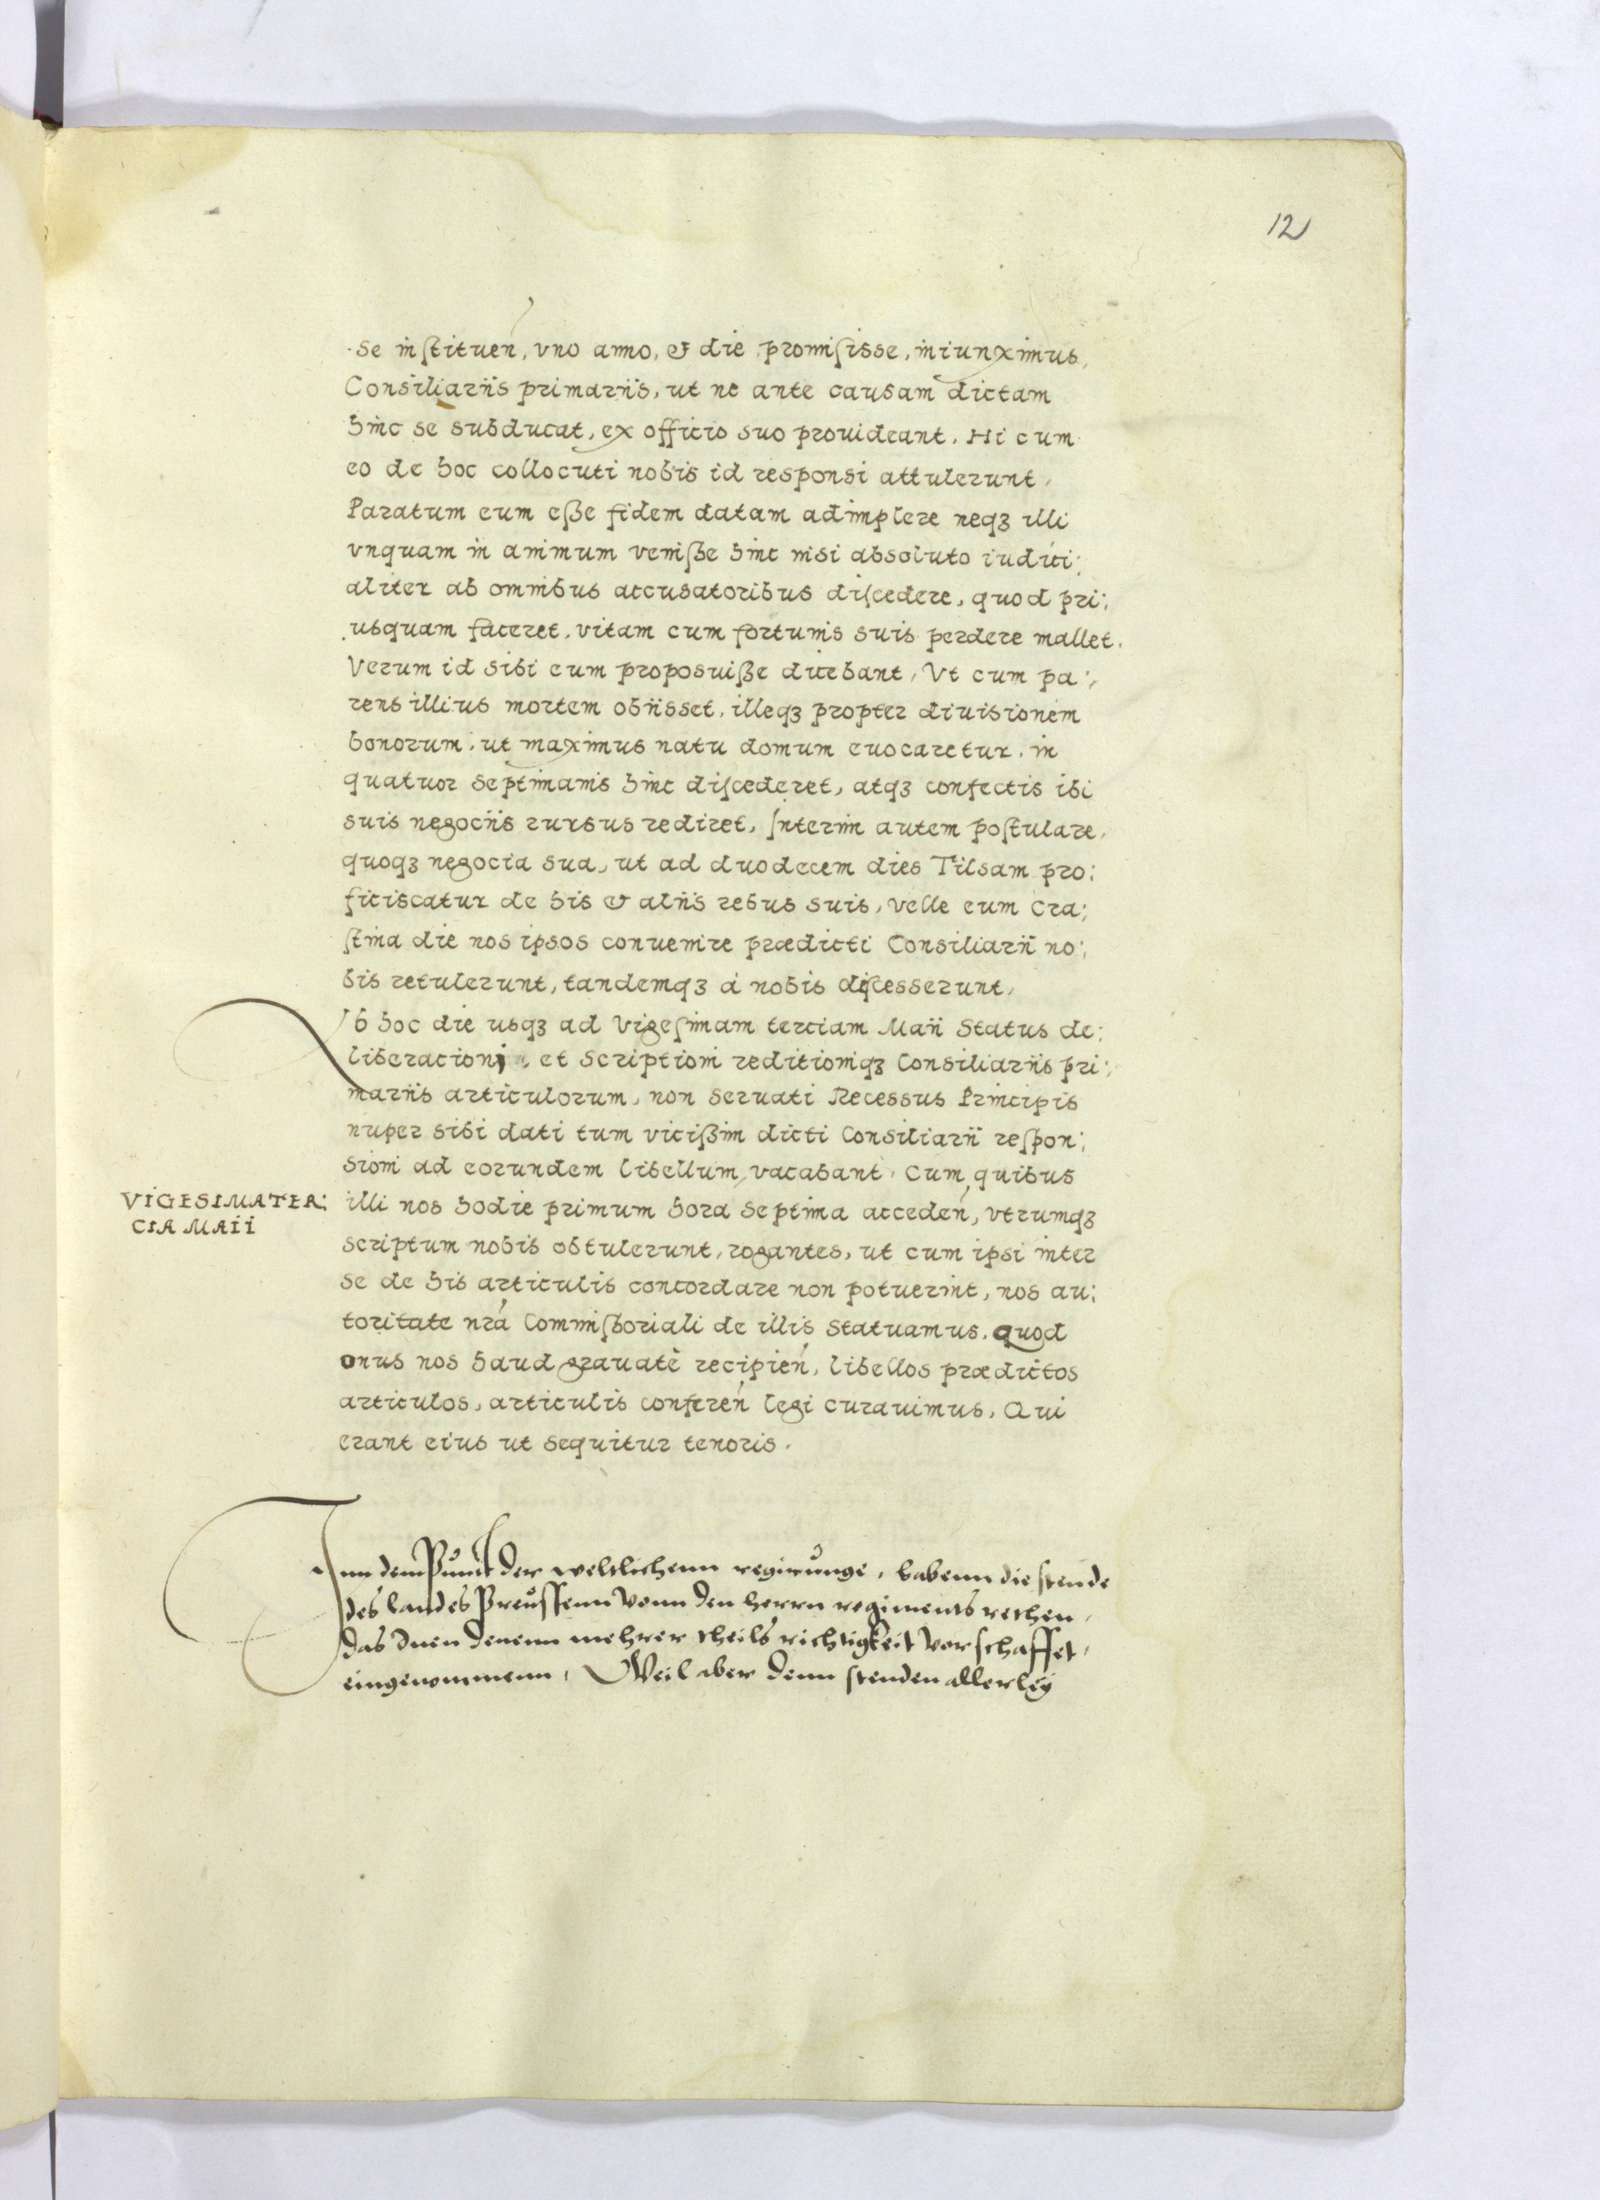 12
se instituen, vno anno, & die promisisse, iniunximus,
Consiliariis primariis, ut ne ante causam dictam
hinc se subducat, ex officio suo prouideant. Hi cum
eo de hoc collocuti nobis id responsi attulerunt,
Paratum eum eße fidem datam adimplere neqꝫ illi
vnquam in animum venißse hinc nisi absoluto iuditi:
aliter ab omnibus accusatoribus discedere, quod pri:
usquam faceret, vitam cum fortunis suis perdere mallet.
Verum id sibi eum proposuiße dicebant, Vt cum pa:
rens illius mortem obiisset, illeqꝫ propter diuisionem
bonorum, ut maximus natu domum euocaretur, in
quatuor septimanis hinc discederet, atqꝫ confectis ibi
suis negociis rursus rediret, Interim autem postulare,
quoqꝫ negocia sua, ut ad duodecem dies Tilsam pro:
ficiscatur de his & aliis rebus suis, velle eum Cra:
stina die nos ipsos conuenire prædicti Consiliarii no:
bis retulerunt, tandemqꝫ à nobis discesserunt,
Ab hoc die usqꝫ ad Vigesimam terciam Maii Status de:
liberacioni et Scriptioni reditioniqꝫ Consiliariis pri:
mariis articulorum, non seruati Recessus Principis
nuper sibi dati tum vicißim dicti Consiliarii respon:
sioni ad eorundem libellum vacabant. Cum quibus
VIGESIMATER:
CIA MAII
illi nos hodie primum hora septima acceden, vtrumqꝫ
scriptum nobis obtulerunt, rogantes, ut cum ipsi inter
se de his articulis concordare non potuerint, nos au:
toritate nra Commißoriali de illis statuamus. quod
onus nos haud grauatè recipien, libellos prædictos
articulos, articulis conferen legi curauimus, Qui
erant eius ut sequitur tenoris.
Inn dem Punct der weltlichenn regirunge, habenn die stende
des landes Preussenn vonn den herrn regiments rethen,
das Inen denenn mehrer theils richtigkeit vorschaffet,
eingenommenn, Weil aber denn stenden allerleÿ